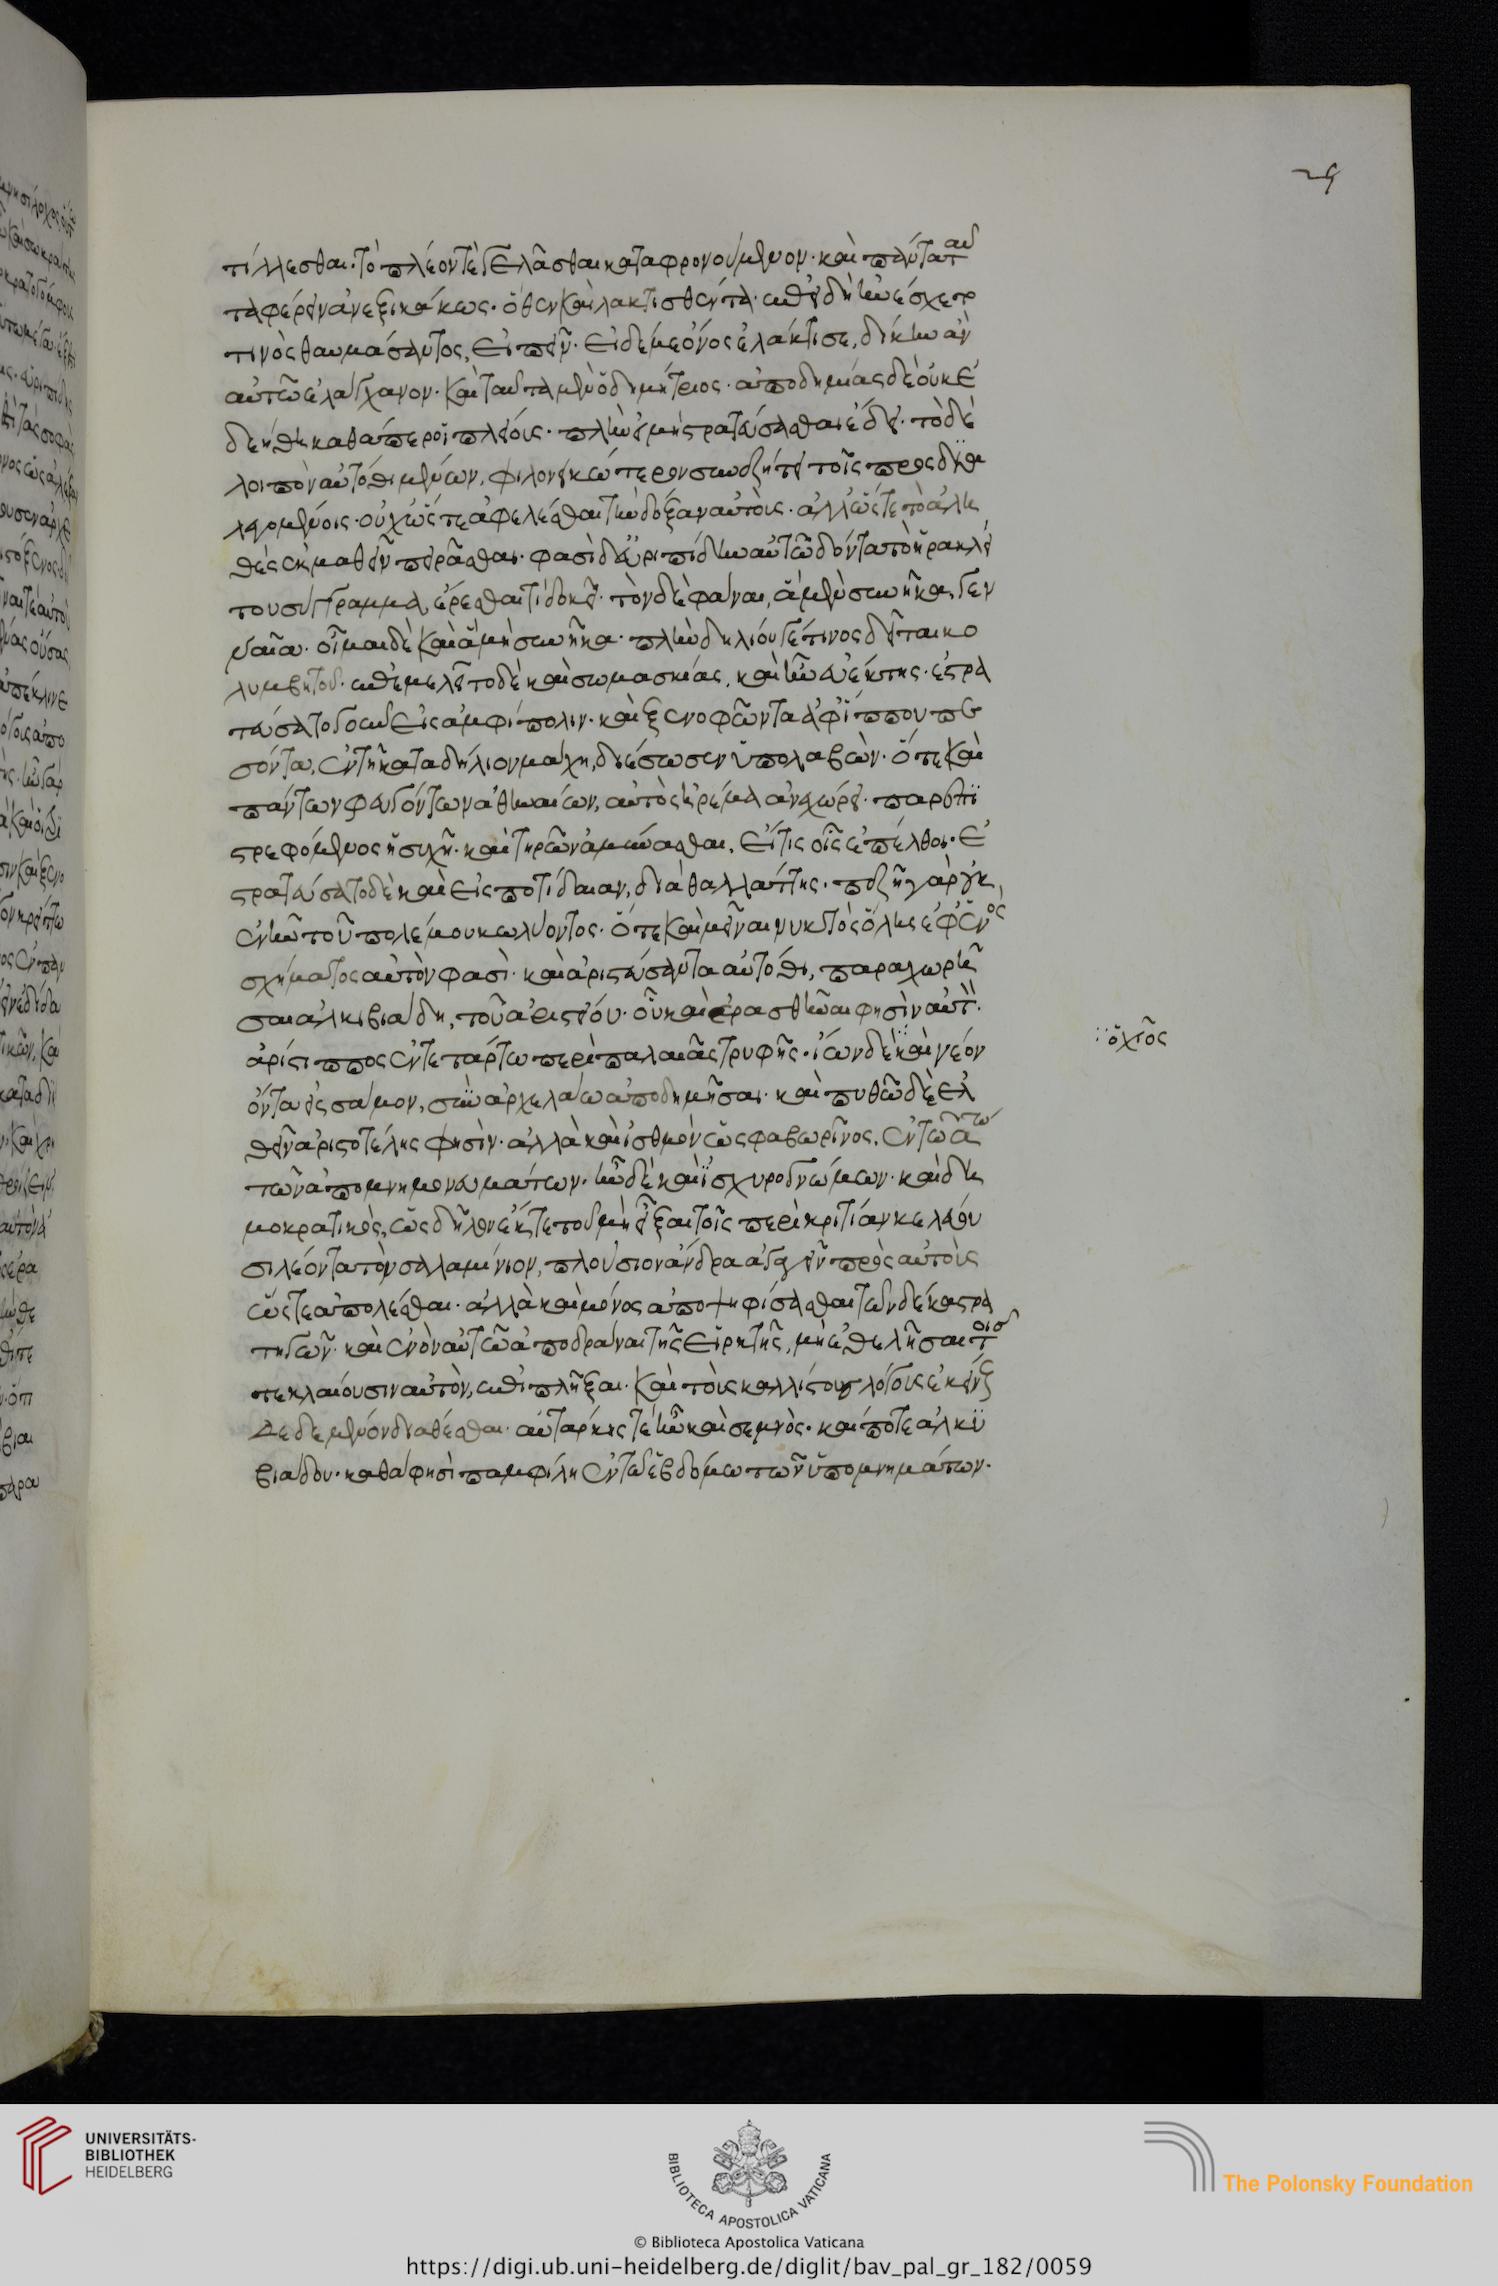 29
τίλλεσθαι· τὸ πλέον τὲ γελᾶσθαι καταφρονούμενον· καὶ πάντα ταῦ
τα φέρειν ἀνεξικάκως· ὅθεν καὶ λακτισθέντα· ἐπειδὴ ἠνέσχετο
τινὸς θαυμάσαντος, εἰπεῖν· εἰ δέ με ὄνος ἐλάκτισε, δίκην ἂν
αὐτῶ ἐλάγχανον· καὶ ταῦτα μὲν ὁ δημήτριος· ἀποδημίας δὲ οὐκ ἐ
δεήθη καθάπερ οἱ πλείους· πλὴν εἰ μὴ στρατεύσασθαι ἔδει· τὸ δὲ
λοιπὸν αὐτόθι μένων, φιλονεικώτερον συνεζήτει τοῖς προσδια
λεγομένοις· οὐχ ὥστε ἀφελέσθαι τὴν δόξαν αὐτοὺς· ἀλλ' ὥστε τὸ ἀλη
θὲς ἐκμαθεῖν πειρᾶσθαι· φασὶ δ' εὐριπίδην αὐτῶ δόντα τὸ ἡρακλεί
του σύγγραμμα, ἐρέσθαι τί δοκεῖ· τὸν δὲ φάναι, ἃ μὲν συνῆκα, γεν
ναῖα· οἶμαι δὲ καὶ ἃ μὴ συνῆκα· πλὴν δηλίου γέ τινος δεῖται κο
λυμβητοῦ· ἐπεμελεῖτο δὲ καὶ σωμασκίας, καὶ ἦν εὐέκτης· ἐστρα
τεύσατο γοῦν εἰς ἀμφίπολιν· καὶ ξενοφῶντα ἀφ' ἵππου πε
σόντα, ἐν τῆ κατα δήλιον μάχη, διέσωσεν ὑπολαβὼν· ὅτε καὶ
πάντων φευγόντων ἀθηναίων, αὐτὸς ἠρέμα ἀνεχώρει· παρεπι
στρεφόμενος ἡσυχῆ· καὶ τηρῶν ἀμύνασθαι, εἴ τις οἷ ἐπέλθοι· ἐ
στρατεύσατο δὲ καὶ εἰς ποτίδαιαν, διὰ θαλλάττης· πεζῆ γὰρ οὐκ
ἐνῆν τοῦ πολέμου κωλύοντος· ὅτε καὶ μεῖναι νυκτὸς ὅλης ἐφ' ἑνὸς
σχήματος αὐτὸν φασὶ· καὶ ἀριστεύσαντα αὐτόθι, παραχωρῆ
σαι ἀλκιβιάδη, τοῦ ἀριστείου· οὗ καὶ ἐρασθῆναι φησὶν αὐτὸν
ἀρίστιππος ἐν τετάρτω περὶ παλαιᾶς τρυφῆς· ἴων δὲ καὶ νέον
ὄντα εἰς σάμον, σὺν ἀρχελάω ἀποδημῆσαι· καὶ πυθῶδε ἐλ
θεῖν ἀριστοτέλης φησὶν· ἀλλὰ καὶ ἰσθμὸν ὡς φαβωρῖνος, ἐν τῶ πρώτω
τῶν ἀπομνημονευμάτων· ἦν δὲ καὶ ἰσχυρογνώμων· καὶ δη
μοκρατικὸς, ὡς δῆλον ἔκ τε τοῦ μὴ εἶξαι τοῖς περὶ κριτίαν κελεύου
σι λέοντα τὸν σαλαμίνιον, πλούσιον ἄνδρα ἀγαγεῖν πρὸς αὐτοὺς
ὥστε ἀπολέσθαι· ἀλλὰ καὶ μόνος ἀποψηφίσασθαι τῶν δέκα στρα
τηγῶν· καὶ ἐνὸν αὐτῶ ἀποδρᾶναι τῆς εἱρκτῆς, μὴ ἐθελῆσαι τοῖσ
τε κλαίουσιν αὐτὸν, ἐπιπλῆξαι· καὶ τοὺς καλλίστους λόγους ἐκείνους
δεδεμένον διαθέσθαι· αὐτάρκης τὲ ἦν καὶ σεμνὸς· καί ποτε ἀλκι
βιάδου· καθά φησὶ παμφίλη ἐν τῶ ἑβδόμω τῶν ὑπομνημάτων·
ὁ χῖος
UNIVERSITÄTS-
BIBLIOTHEK
HEIDELBERG
BIBLIOTECA APOSTOLICA VATICANA
© Biblioteca Apostolica Vaticana
The Polonsky Foundation
https://digi.ub.uni-heidelberg.de/diglit/bav_pal_gr_182/0059